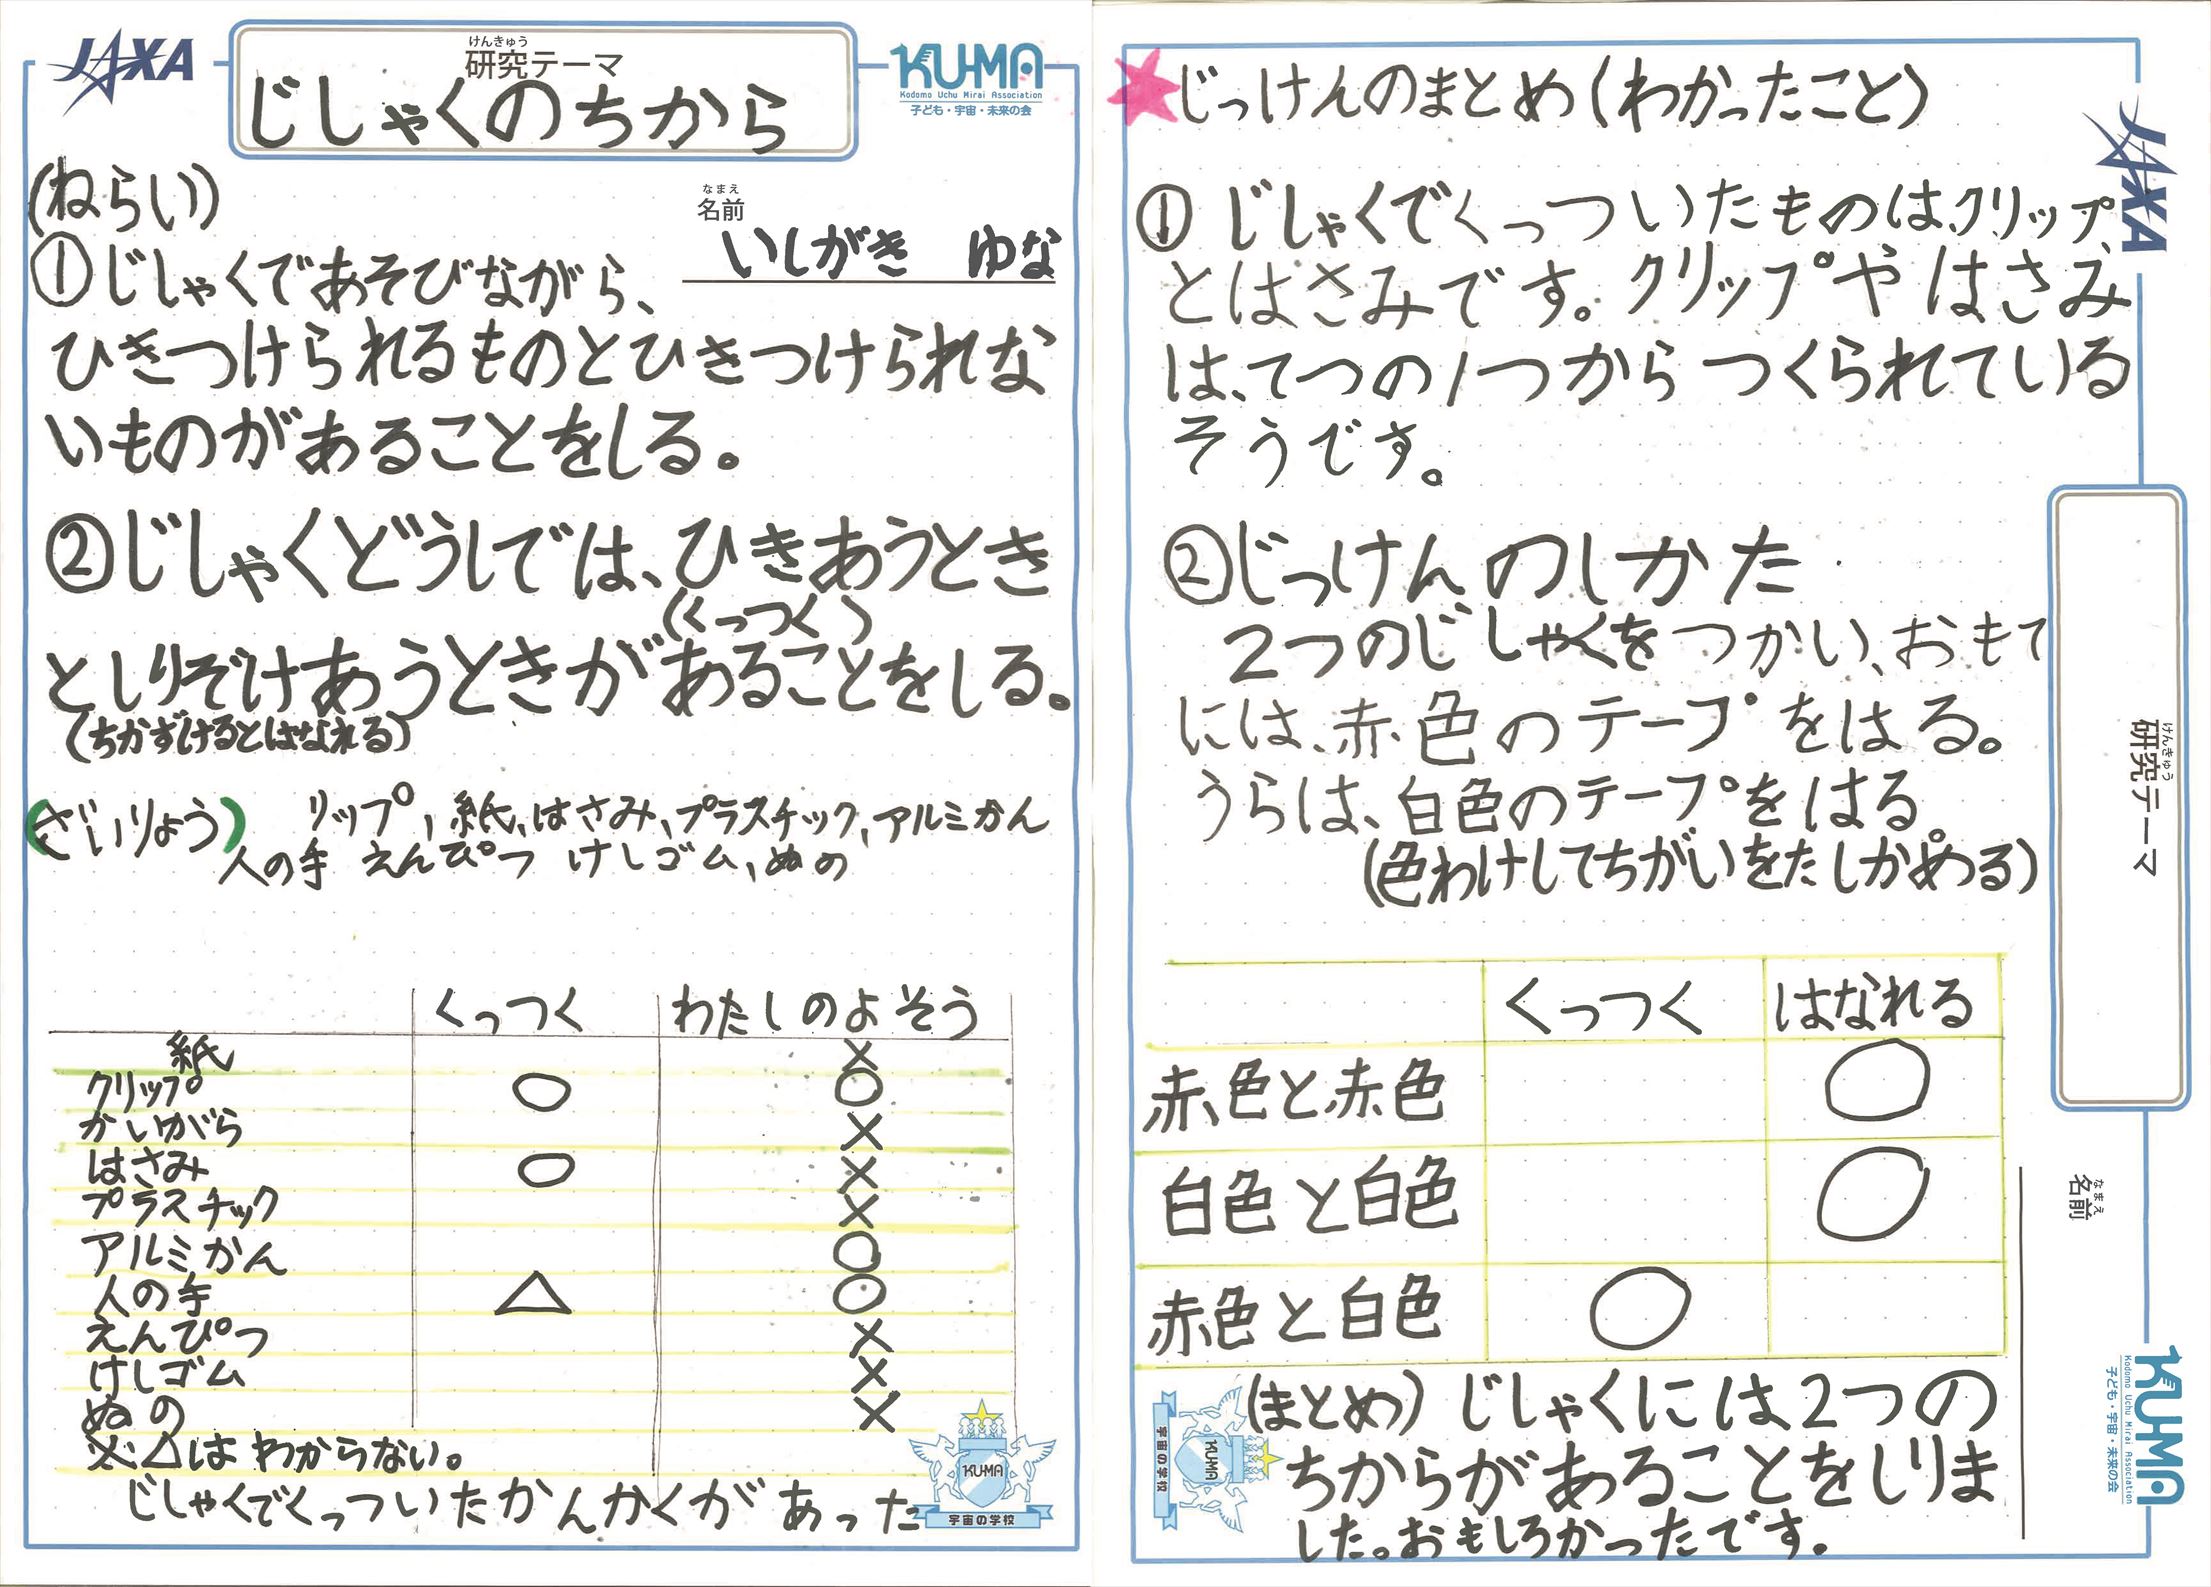 JAXA
けんきゅう
研究テーマ
じしゃくのちから
KU-MA
Kodomo Uchu Mirai Association
子ども・宇宙・未来の会
(ねらい)
なまえ
名前
いしがき ゆな
①じしゃくであそびながら、
ひきつけられるものとひきつけられな
いものがあることをしる。
②じしゃくどうしでは、ひきあうとき
(くっつく)
としりぞけあうときがあることをしる。
(ちかずけるとはなれる)
(ざいりょう) リップ、紙、はさみ、プラスチック、アルミかん
人の手 えんぴつ けしゴム、ぬの
くっつく わたしのよそう
紙 ×
クリップ ○ ○
かいがら ×
はさみ ○ ×
プラスチック ×
アルミかん ○
人の手 △ ○
えんぴつ ×
けしゴム ×
ぬの ×
※△はわからない。
じしゃくでくっついたかんかくがあった
KUMA
宇宙の学校
★じっけんのまとめ(わかったこと)
① じしゃくでくっついたものは、クリップ、
とはさみです。クリップやはさみ
は、てつの1つからつくられている
そうです。
②じっけんのしかた
2つのじしゃくをつかい、おもて
には、赤色のテープをはる。
うらは、白色のテープをはる
(色わけしてちがいをたしかめる)
くっつく はなれる
赤色と赤色 ○
白色と白色 ○
赤色と白色 ○
(まとめ) じしゃくには2つの
ちからがあることをしりま
した。おもしろかったです。
JAXA
けんきゅう
研究テーマ
なまえ
名前
KU-MA
Kodomo Uchu Mirai Association
子ども・宇宙・未来の会
KUMA
宇宙の学校